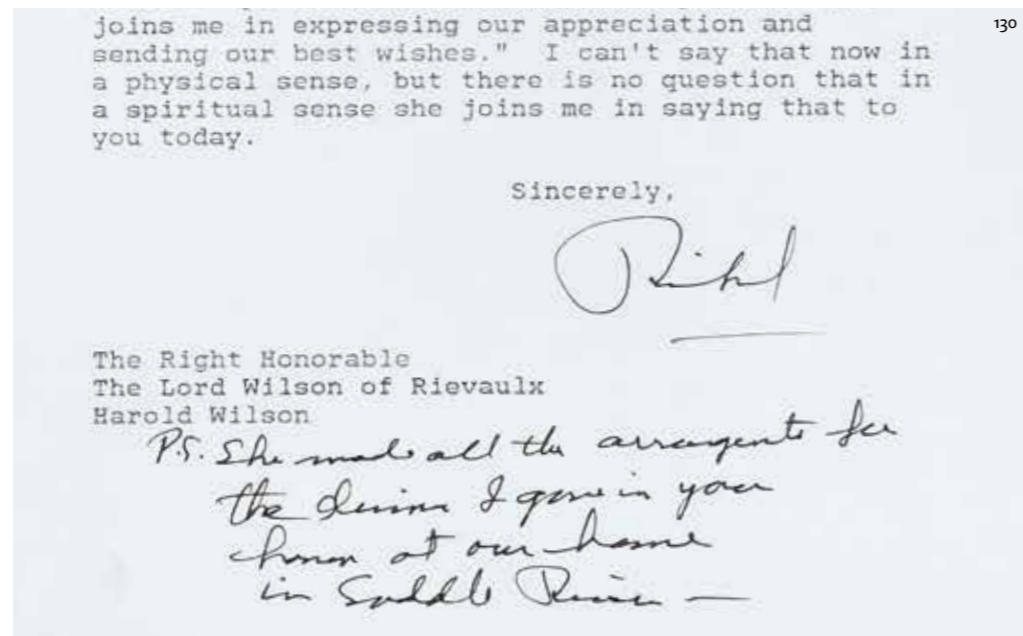 130
joins me in expressing our appreciation and
sending our best wishes." I can't say that now in
a physical sense, but there is no question that in
a spiritual sense she joins me in saying that to
you today.
Sincerely,
Richard
The Right Honorable
The Lord Wilson of Rievaulx
Harold Wilson
P.S. She made all the arrangements for
the dinner I gave in your
honor at our home
in Saddle River —